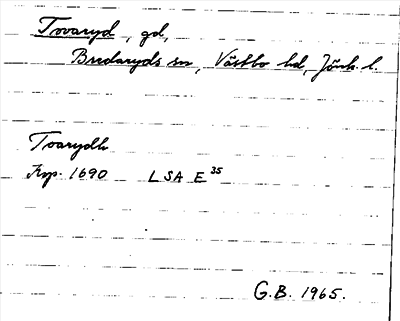 Tovaryd, gd,
Bredaryds sn, Västbo hd, Jönk. l.
Toarydh
Kop. 1690 LSA E 35
G.B. 1965.